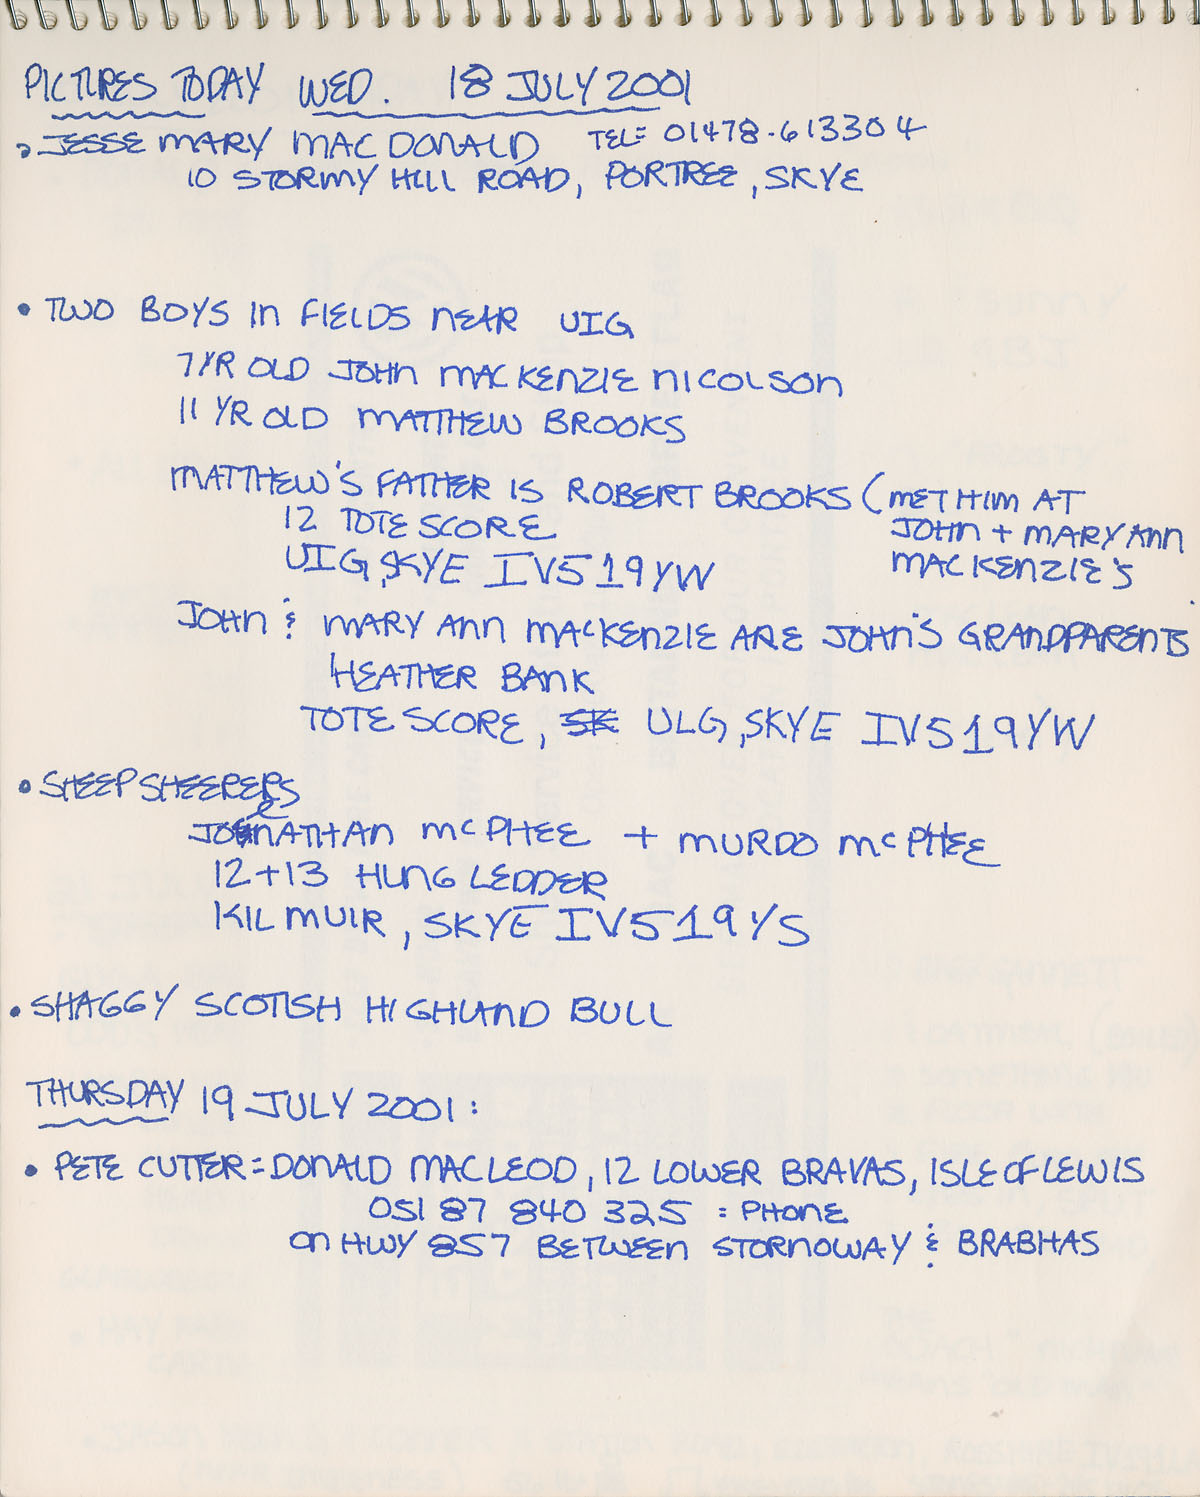 PICTURES TODAY WED. 18 JULY 2001
• JESSE MARY MACDONALD TEL= 01478-613304
10 STORMY HILL ROAD, PORTREE, SKYE
• TWO BOYS IN FIELDS NEAR UIG
7 YR OLD JOHN MACKENZIE NICOLSON
11 YR OLD MATTHEW BROOKS
MATTHEW'S FATHER IS ROBERT BROOKS (MET HIM AT
JOHN + MARY ANN
MACKENZIE'S
12 TOTE SCORE
UIG, SKYE IV519YW
JOHN & MARY ANN MACKENZIE ARE JOHN'S GRANDPARENTS
HEATHER BANK
TOTE SCORE, SK ULG, SKYE IV519YW
• SHEEP SHEERERS
JONATHAN MCPHEE + MURDO MCPHEE
12+13 HUNGLEDDER
KILMUIR, SKYE IV519YS
• SHAGGY SCOTISH HIGHLAND BULL
THURSDAY 19 JULY 2001:
• PETE CUTTER = DONALD MACLEOD, 12 LOWER BRAVAS, ISLE OF LEWIS
051 87 840 325 : PHONE
ON HWY 857 BETWEEN STORNOWAY & BRABHAS